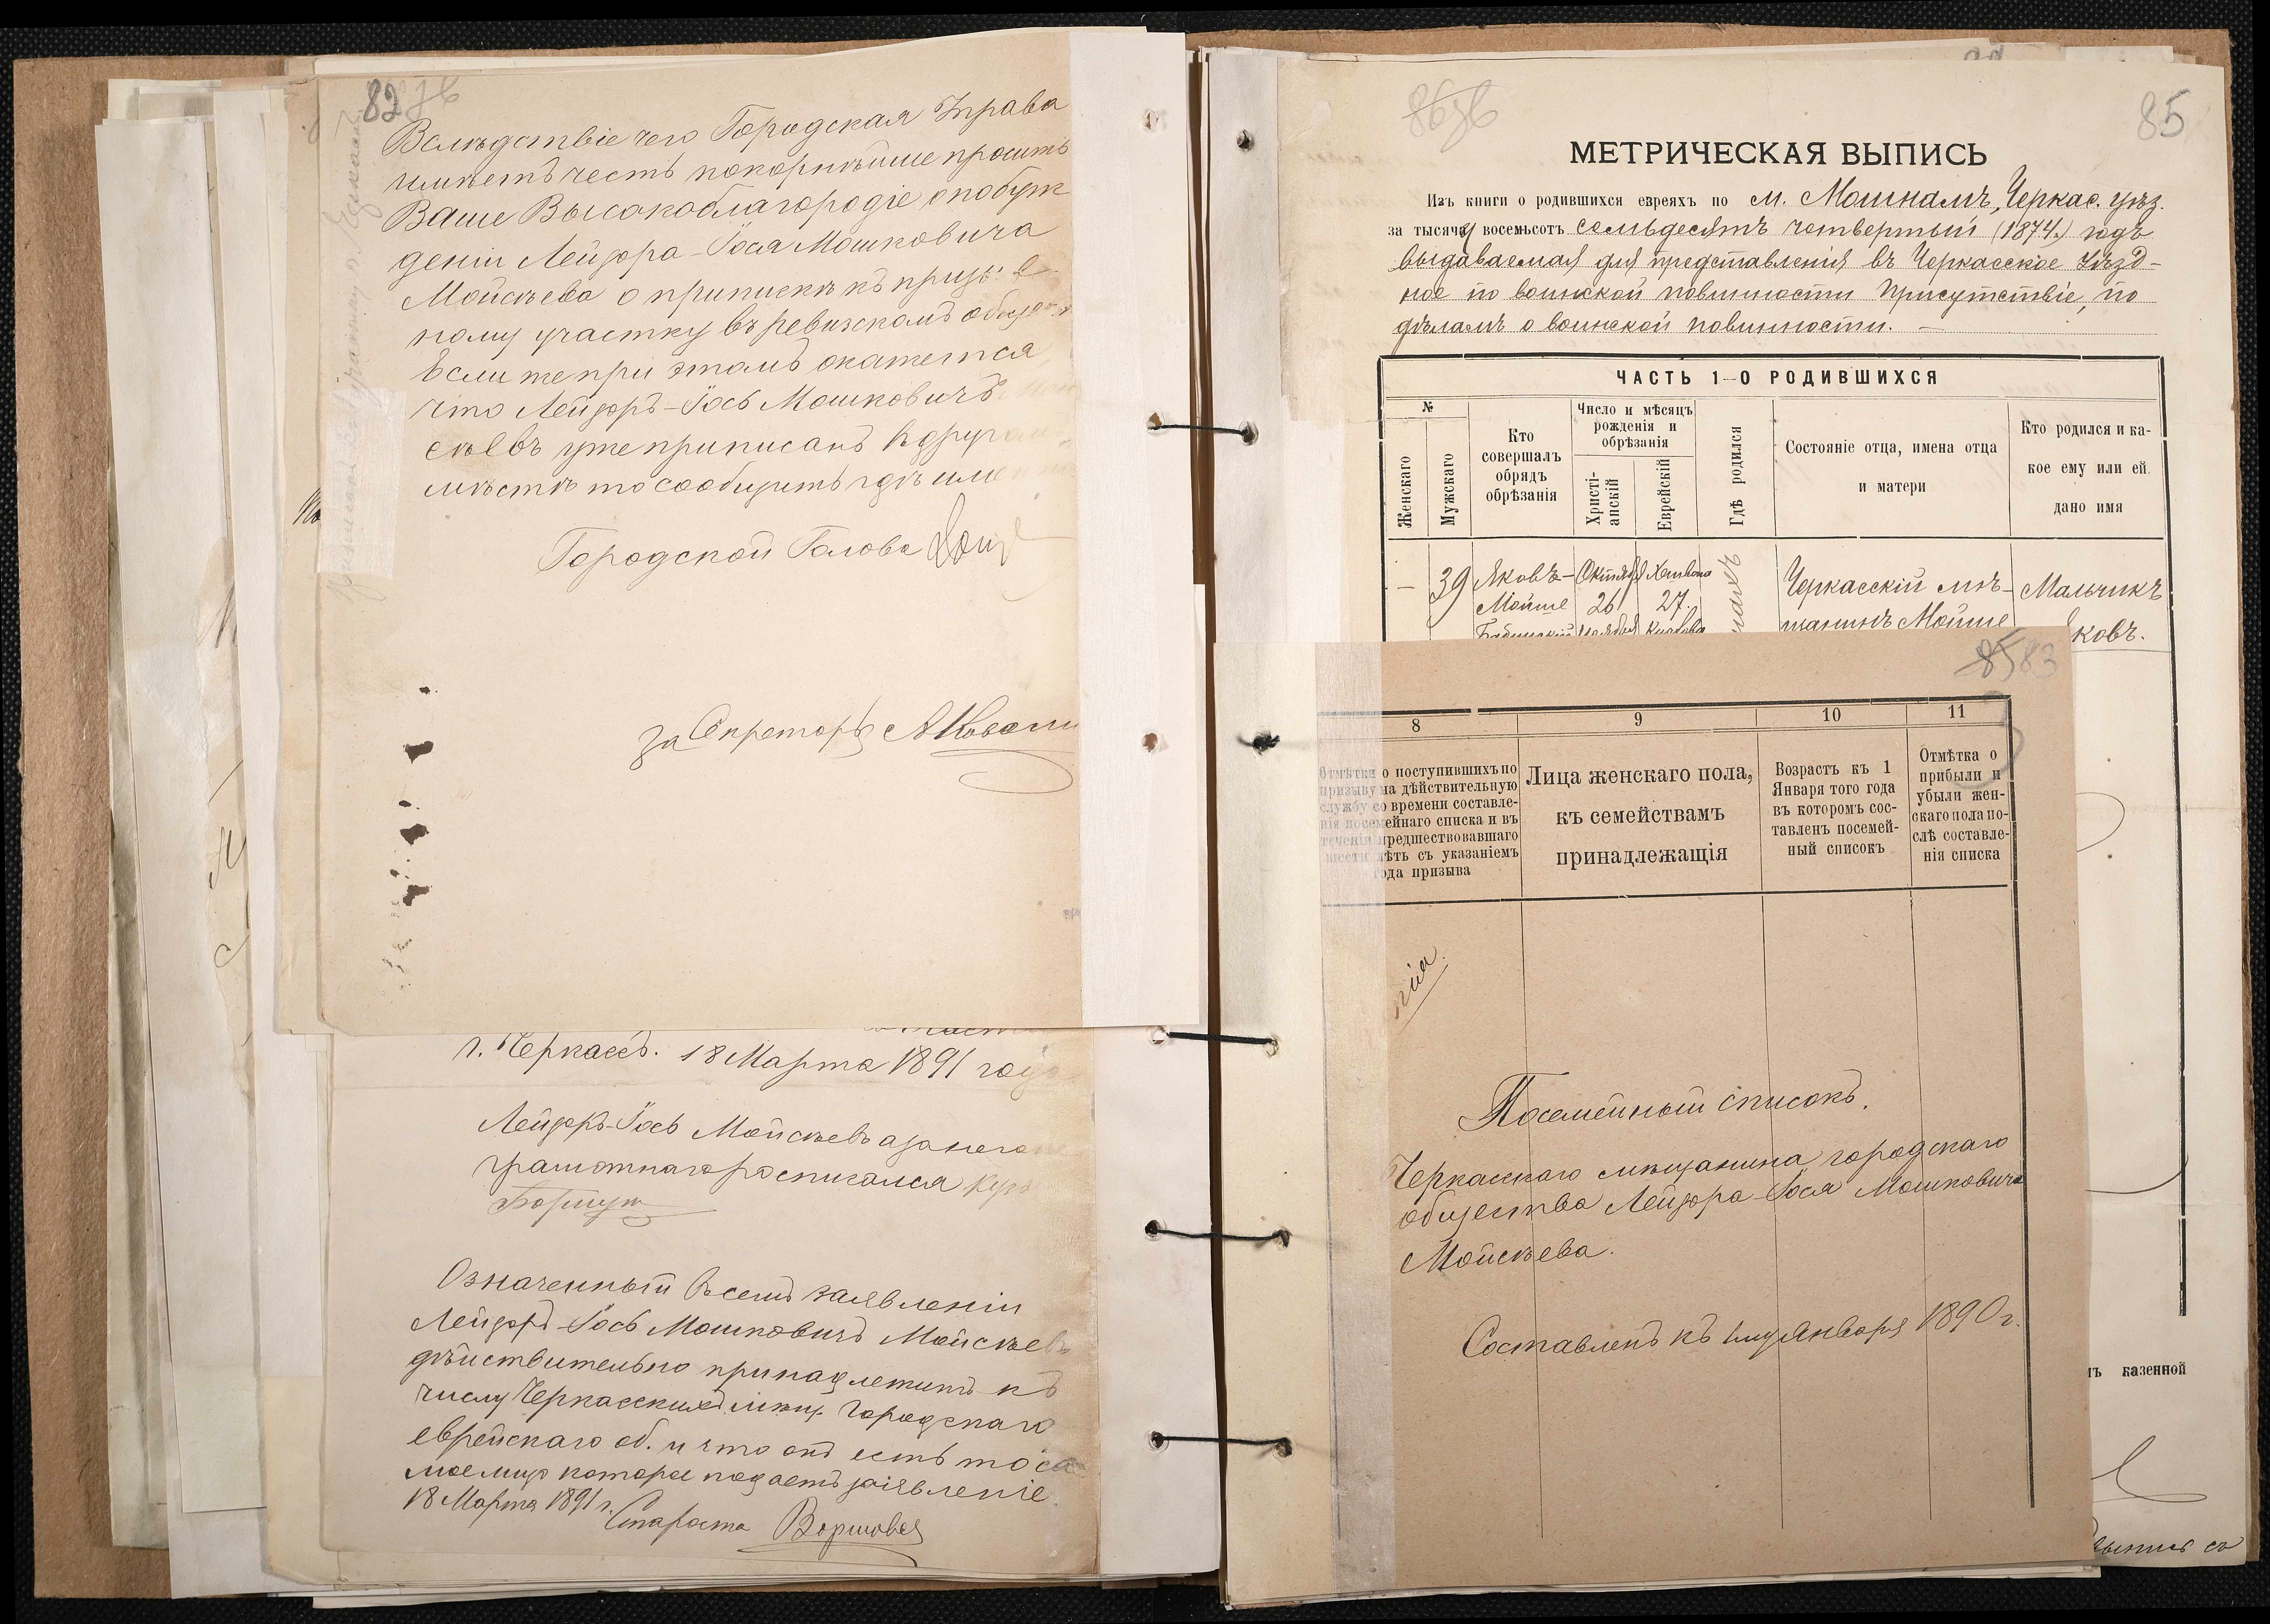 82
Вслѣдствіе чего Городская Управа
имѣетъ честь покорнѣйше просить
Ваше Высокоблагородіе о побуж
деніи Лейзора-Іося Мошковича
Мойсѣева о припискѣ къ призыв
ному участку въ ревизскомъ обще
Если же при этомъ окажется
что Лейзоръ-Іось Мошковичъ
сѣевъ уже приписанъ въ друго
мѣстѣ то сообщить гдѣ име
Городской Голова
за Секретаря
г. Черкассъ. 18 Марта 1891 года
Лейзоръ-Іось Мойсѣевъ а за него не
грамотнаго росписался
Означенный въ семъ заявленіи
Лейзоръ-Іось Мошковичъ Мойсѣевъ
дѣйствительно принадлежитъ къ
числу Черкасскихъ мѣщ. городскаго
еврейскаго об. и что онъ есть то са
мое лицо которое подаетъ заявленіе
18 Марта 1891 г.
Староста
86
85
МЕТРИЧЕСКАЯ ВЫПИСЬ
Изъ книги о родившихся евреяхъ по м. Мошнамъ, Черкас. уѣз.
за тысяча восемьсотъ семьдесятъ четвертый (1874) годъ
выдаваемая для представленія въ Черкасское Уѣзд-
ное по воинской повинности Присутствіе, по
дѣламъ о воинской повинности. —
ЧАСТЬ 1-О РОДИВШИХСЯ
№
Женскаго
Мужскаго
Кто
совершалъ
обрядъ
обрѣзанія
Число и мѣсяцъ
рожденія и
обрѣзанія
Христі-
анскій
Еврейскій
Гдѣ родился
Состояніе отца, имена отца
и матери
Кто родился и ка-
кое ему или ей
дано имя
— 39 Яковъ- Октября Хешвона Черкасскій мѣ- Мальчикъ
Мойше 26 27. щанинъ Мойше ковъ.
85 83
8 9 10 11
Отмѣтки о поступившихъ по
призыву на дѣйствительную
службу со времени составле-
нія посемейнаго списка и въ
теченіи предшествовавшаго
шести лѣтъ съ указаніемъ
года призыва
Лица женскаго пола,
къ семействамъ
принадлежащія
Возрастъ къ 1
Января того года
въ которомъ сос-
тавленъ посемей-
ный списокъ
Отмѣтка о
прибыли и
убыли жен-
скаго пола по-
слѣ составле-
нія списка
Посемейный списокъ.
Черкасскаго мѣщанина городскаго
общества Лейзора-Іося Мошковича
Мойсѣева.
Составленъ къ 1му Января 1890 г.
казенной